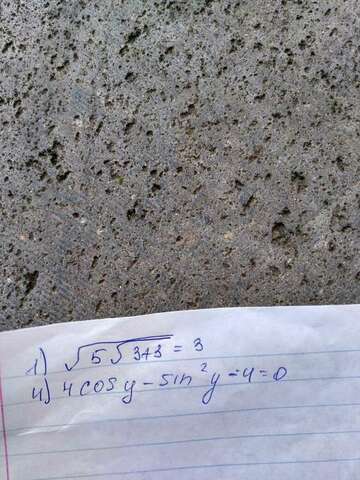 1) √5√3+3 = 3
4) 4cosy - sin²y - 4 = 0